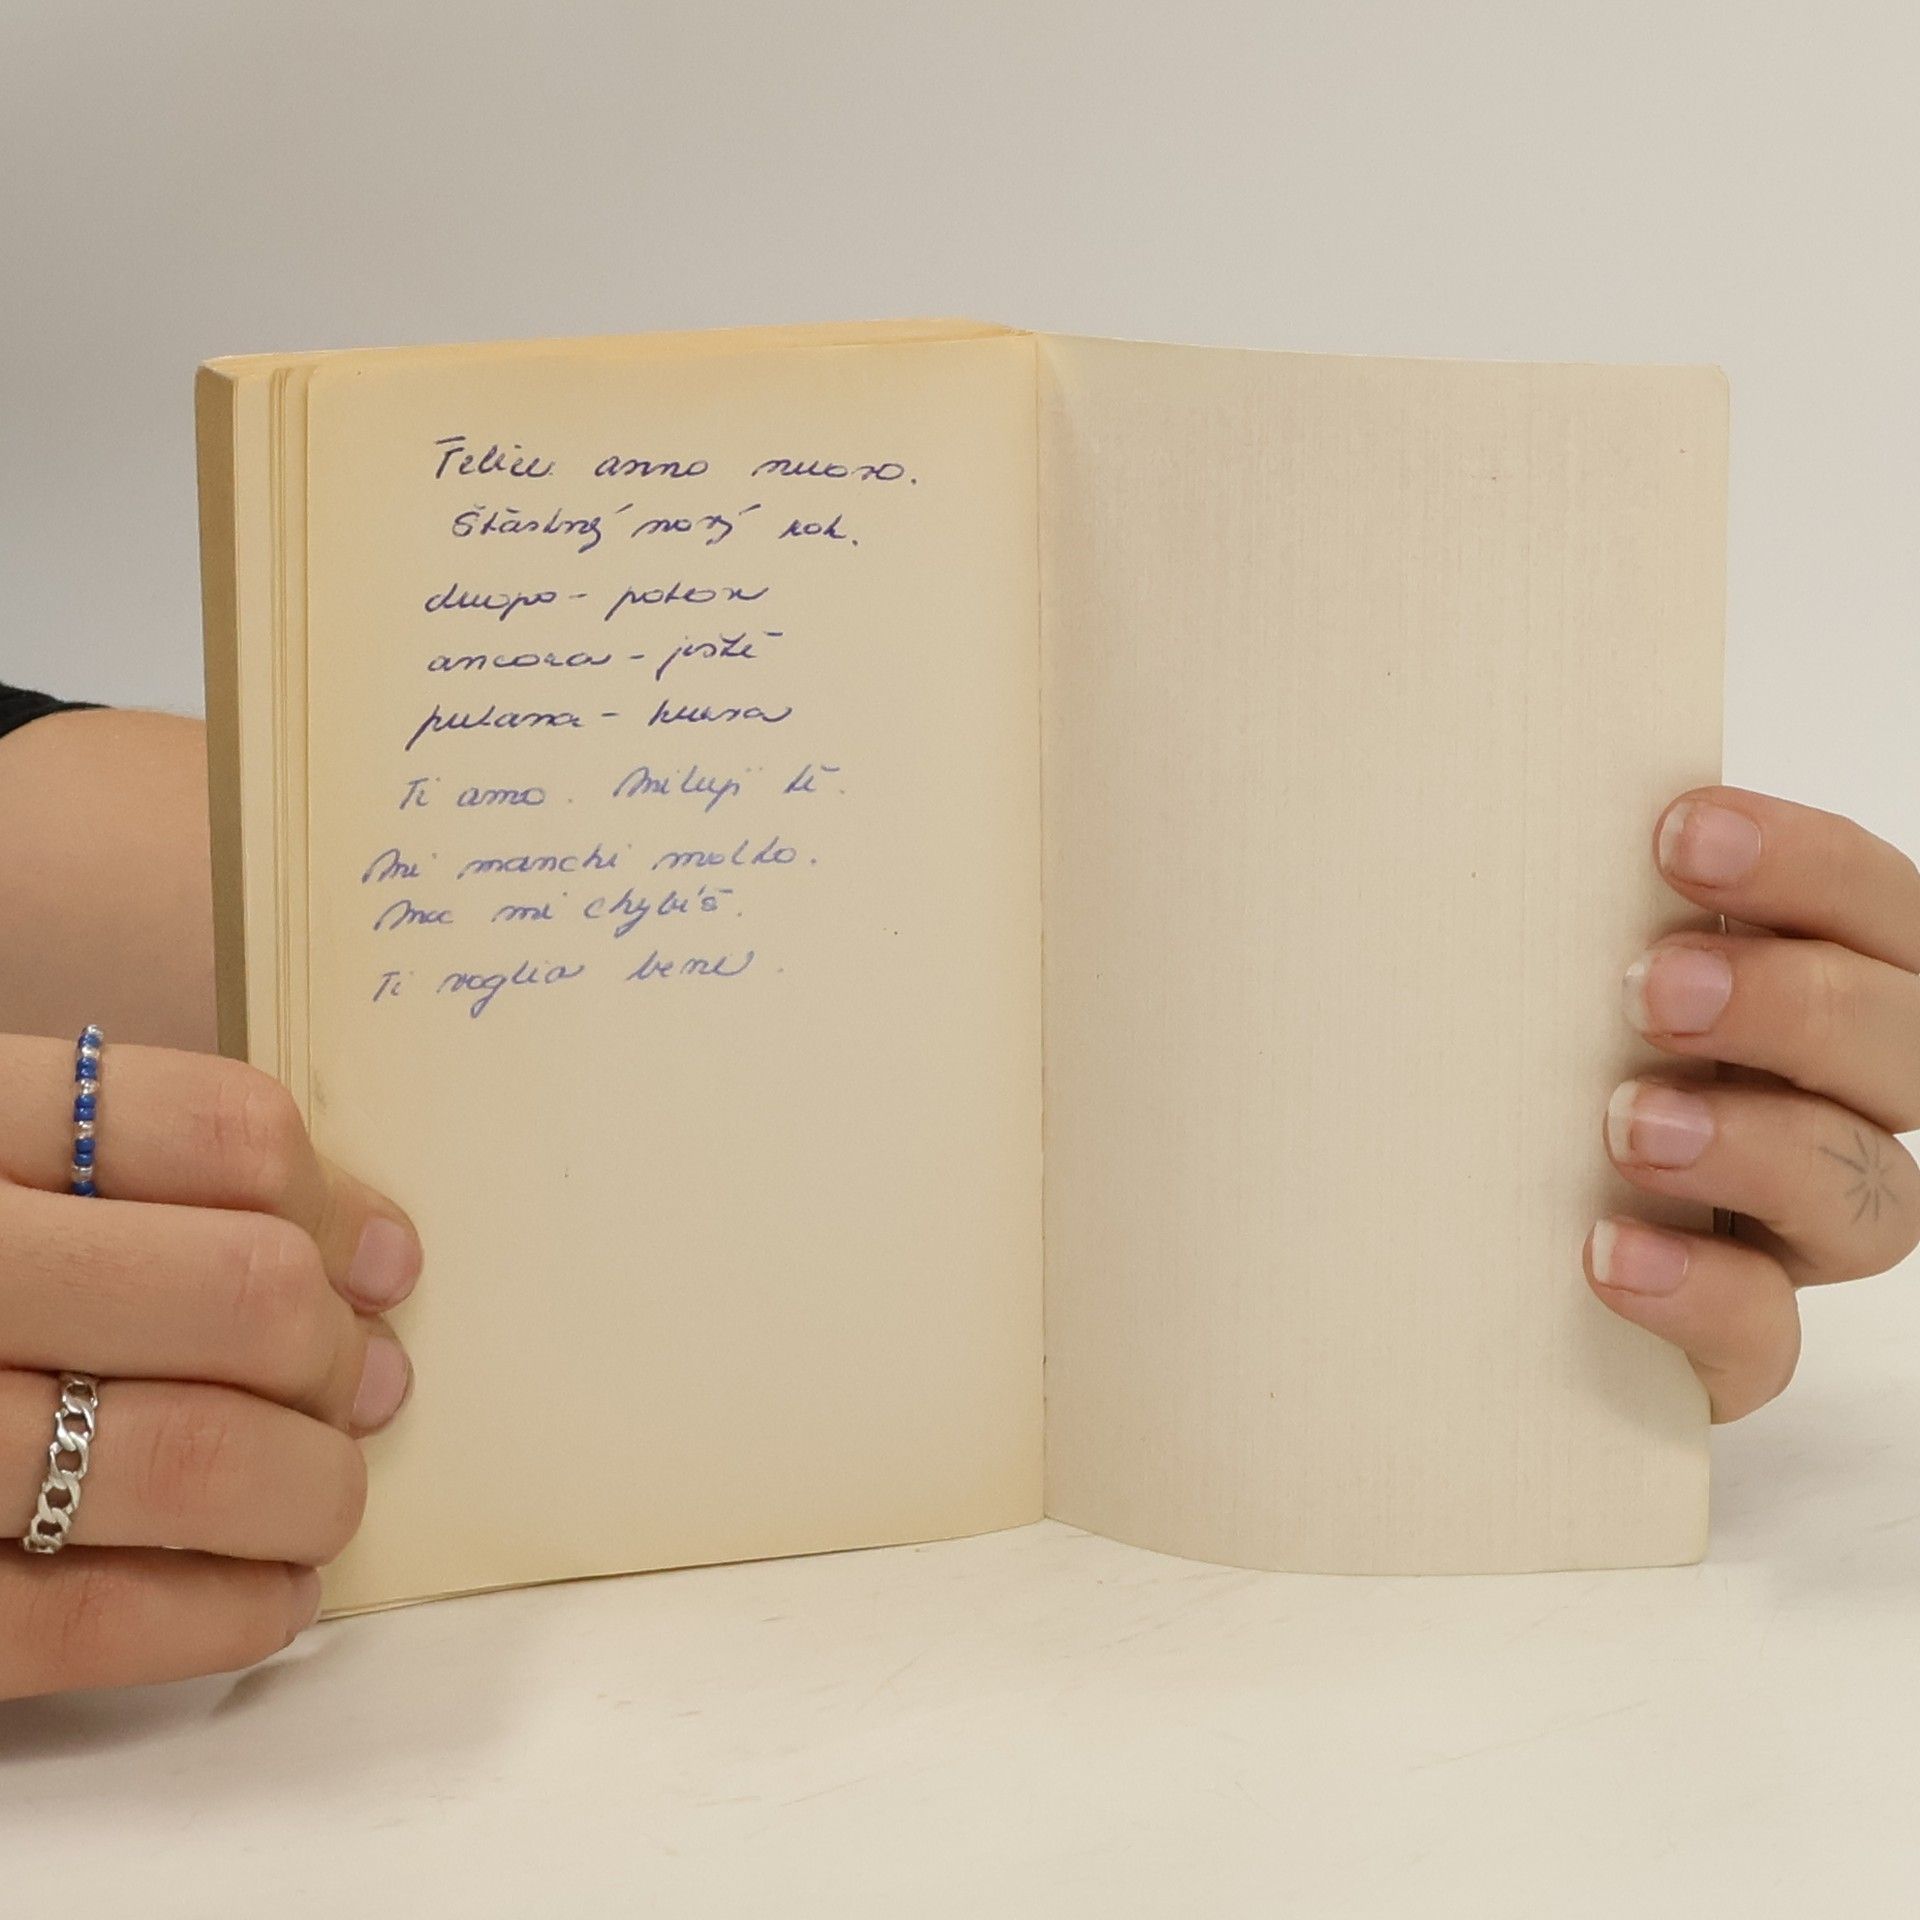 Felice anno nuovo.
Šťastný nový rok.
duopo - potom
ancora - ještě
putana - kurva
Ti amo. Miluji tě.
Mi manchi molto.
Moc mi chybíš.
Ti voglia bene.